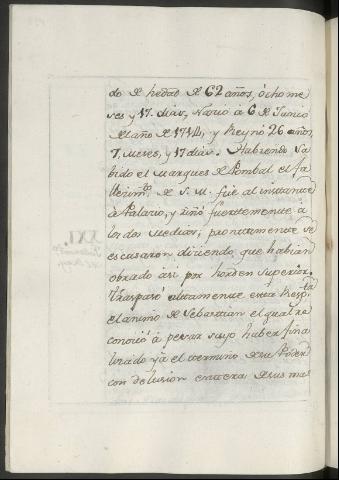 do de hedad de 62 años, ócho me
ses y 17. dias, Nació à 6 de Junio
del año de 1714, y Reynó 26 años,
7, meses, y 17 dias. Habiendo Sa
bido el Marques de Pombal el fa
llecim.to de S. M. fue al instante
à Palacio, y riñó fuertemente à
los dos Medicos; prontamente se
escusaron diciendo que habian
obrado asi por horden superior.
Traspasó altamente esta Resp.ta
el animo de Sebastian el qual re
conoció à pesar suyo haber fina
lizado ya el termino de su Poder
con delusion entera de sus mas
XXI.